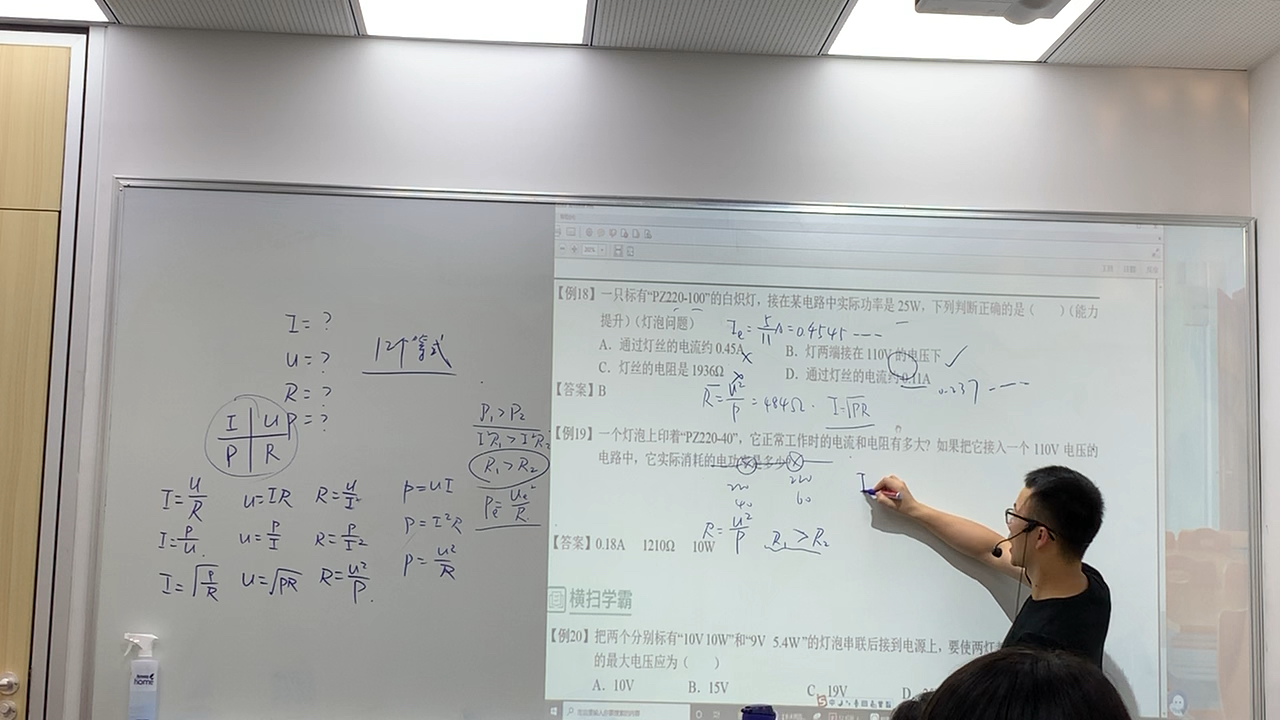 I=?
U=?
R=?
P=?
12个等式
I U
P R
I=U/R U=IR R=U/I² P=UI
I=P/U U=P/I R=P/I² P=I²R
I=√(P/R) U=√PR R=U²/P P=U²/R
P₁>P₂
I²R₁>I²R₂
R₁>R₂
【例18】一只标有“PZ220-100”的白炽灯，接在某电路中实际功率是 25W，下列判断正确的是（ ）（能力
提升）（灯泡问题）
Iₑ=5/11A=0.4545----
A．通过灯丝的电流约 0.45A
B．灯两端接在 110V 的电压下
C．灯丝的电阻是 1936Ω
D．通过灯丝的电流约 0.11A
【答案】B
R=U²/P=484Ω.
【例19】一个灯泡上印着“PZ220-40”，它正常工作时的电流和电阻有多大？如果把它接入一个 110V 电压的
电路中，它实际消耗的电功率是多少？
220 220
40 60
R=U²/P R₁>R₂
I
【答案】0.18A 1210Ω 10W
横扫学霸
【例20】把两个分别标有“10V 10W”和“9V 5.4W”的灯泡串联后接到电源上，要使两灯
的最大电压应为（ ）
A．10V B．15V C．19V D．
home